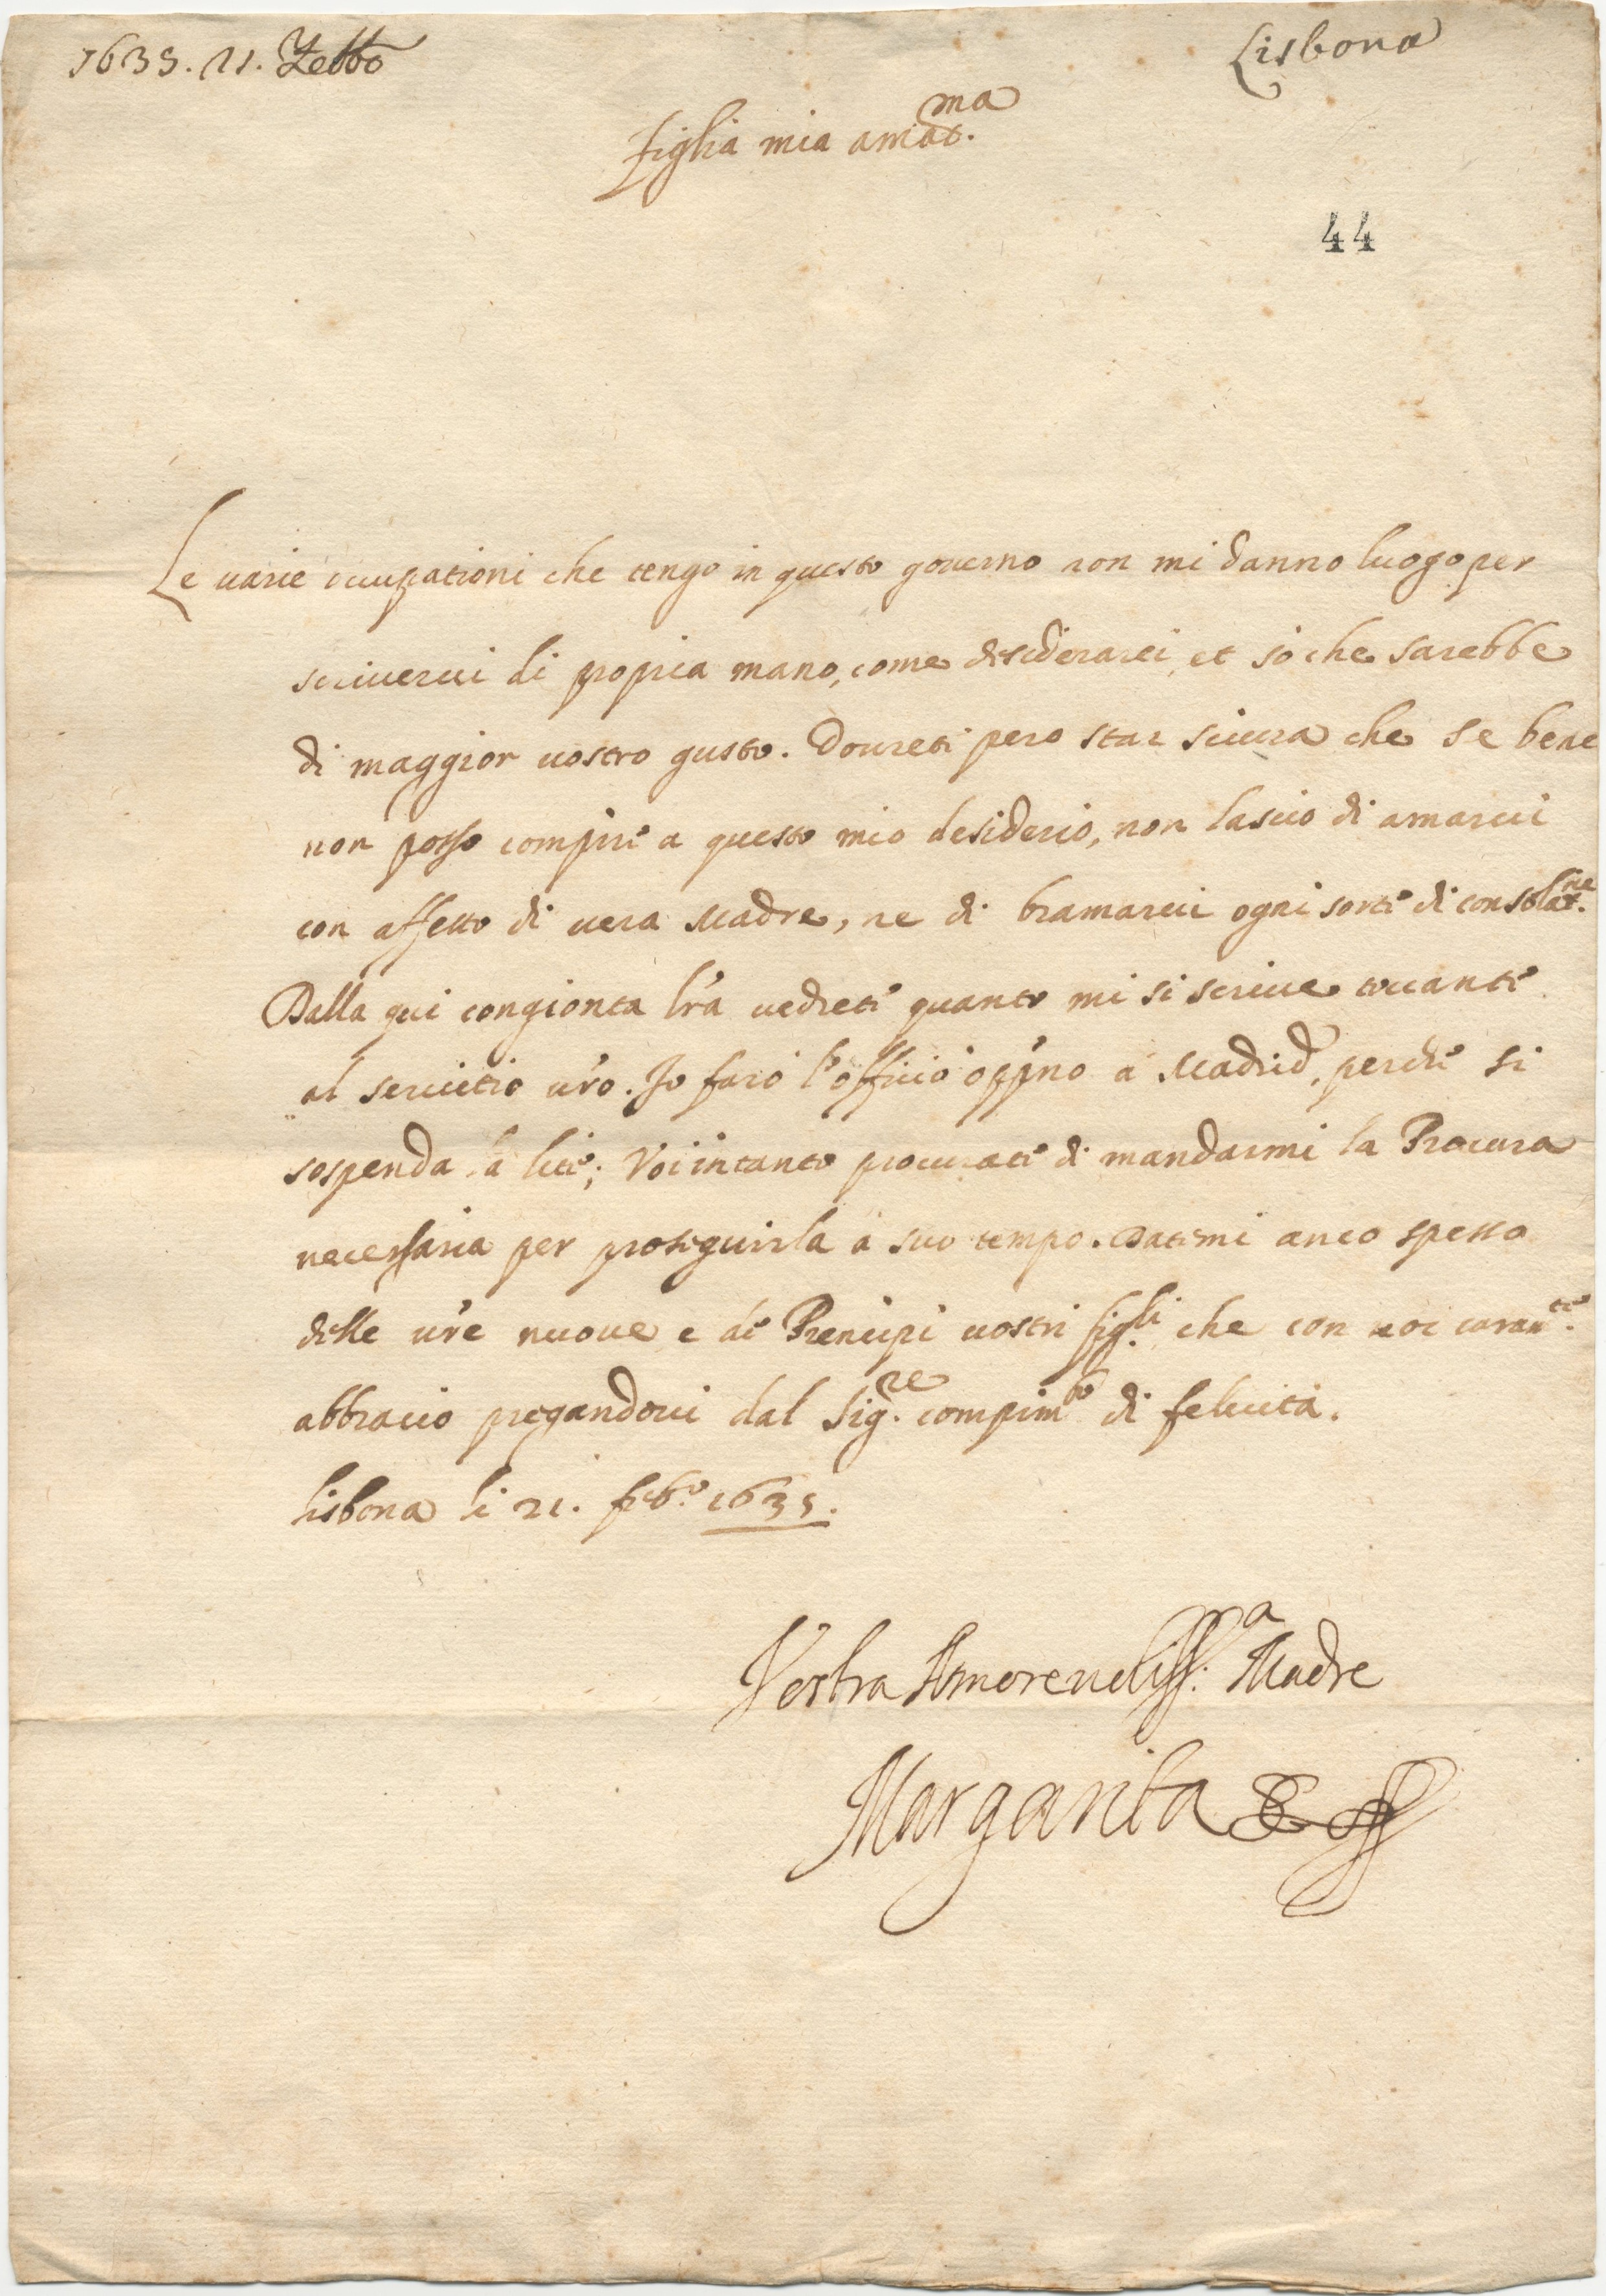 1635. 21. Febbo
Lisbona
figlia mia amat.ma
44
Le uarie occupationi che tengo in questo gouerno non mi danno luogo per
scriuerui di propria mano, come desiderarei, et sò che sarebbe
di maggior uostro gusto. Doureti pero star sicura che se bene
non posso compire a questo mio desiderio, non lascio di amarui
con affetto di uera Madre, ne di bramarui ogni sorte di consolat.ne
Dalla qui congionta lr'a uedreti quanto mi si scriue toccante
al seruitio ur'o. Io farò l'officio opp.no a Madrid, perche si
sospenda la lite; Voi intanto procurate di mandarmi la Procura
necessaria per proseguirla a suo tempo. Datemi anco spesso
delle ur'e nuoue e de Prencipi uostri fig.li che con uoi caram.te
abbraccio pregandoui dal Sig.re compim.to di felicità.
Lisbona li 21. feb.o 1635.
Vostra Amoreuoliss.a Madre
Margarita